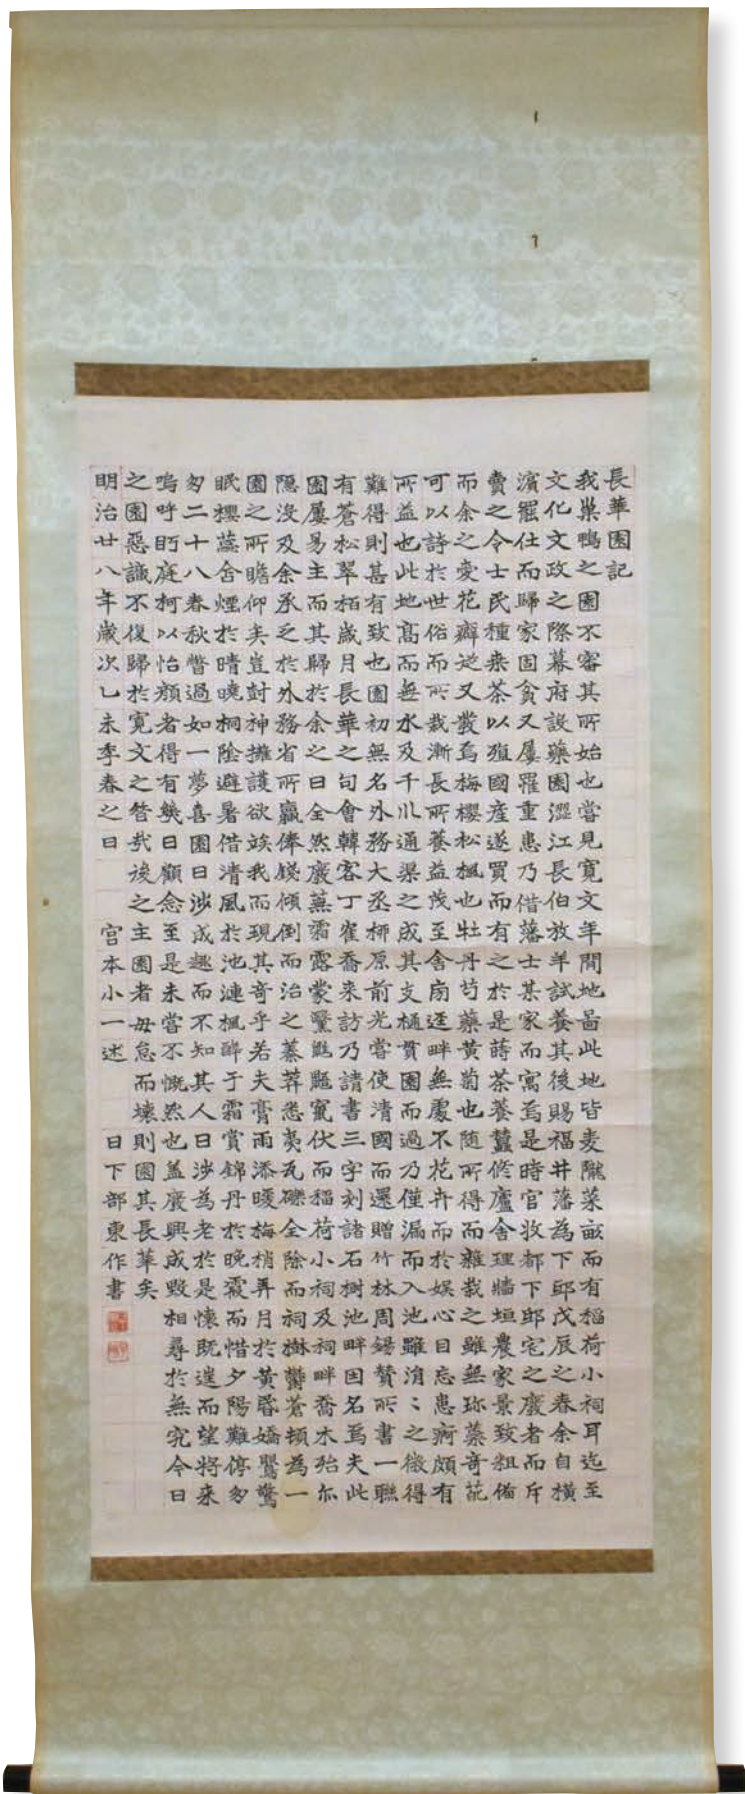 長華園記
我巣鴨之園不審其所始也嘗見寛文年間地啚此地皆麦隴菜畝而有稲荷小祠耳迄至
文化文政之際幕府設藥園澀江長伯放羊試養其後賜福井藩為下邸戊辰之春余自横
濱罷仕而歸家固貧又屢罹重患乃借藩士某家而寓焉是時官收都下邸宅之廢者而斥
賣之令士民種桒茶以殖國産遂買而有之於是蒔茶養蠶修廬舍理牆垣農家景致粗備
而余之愛花癖又發焉梅櫻松楓也牡丹芍藥黄菊也随所得而雜栽之雖無珎蘂奇芲
可以誇於世俗而所栽漸長所養益茂至舍扇逕畔無處不花卉而於娯心目忘患痾頗有
所益也此地髙而無水及千川通渠之成其支樋貫園而過乃僅漏而入池雖涓〻之微得
難得則甚有致也園初無名外務大丞栁原前光嘗使清國而還贈竹林周錫賛所書一聯
有蒼松翠栢歳月長華之句會韓客丁雀喬来訪乃請書三字刻諸石樹池畔因名焉夫此
園屢易主而其歸於余之日全然廢蕪霜露蒙翳鼪鼯竄伏而稲荷小祠及祠畔喬木殆尓
隠没及余承乏於外務省所贏俸錢傾倒而治之蓁莽悉夷瓦礫全除而祠樹鬱蒼頓為一
園之所瞻仰矣豈封神擁護欲竢我而現其奇乎若夫膏雨添暖梅梢弄月於黄昏嬌鸎驚
眠櫻蘂含煙於晴曉桐陰避暑借清風於池漣楓醉于霜賞錦丹於晩霞而惜夕陽難停匆
匆二十八春秋瞥過如一夢喜園日渉成趣而不知其人日渉為老於是懐既遑而望将来
嗚呼眄庭柯以怡顔者得有幾日顧念至是未嘗不慨然也盖廢興成毀相尋於無究今日
之園惡識不復歸於寛文之昝㢤後之主園者毋怠而壊則園其長華矣
明治廿八年歳次乙未季春之日 宮本小一述 日下部東作書